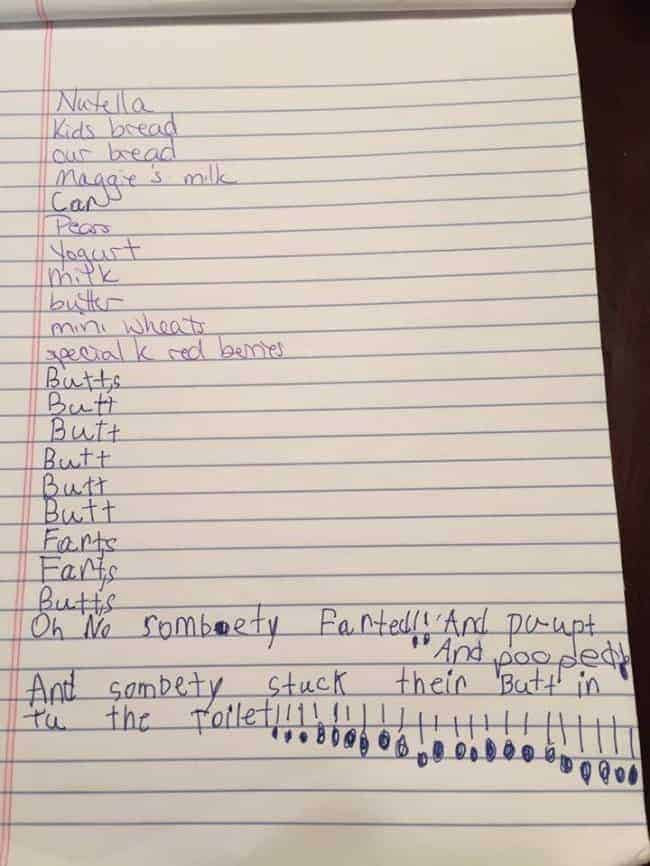 Nutella
Kids bread
our bread
Maggie's milk
Can
Pears
Yogurt
milk
butter
mini wheats
special k red berries
Butts
Butt
Butt
Butt
Butt
Butt
Farts
Farts
Butts
Oh No sombety Farted!! And pu-upt
And pooped!
And sombety stuck their Butt in
tu the toilet!!!!!!!!!!!!!!!!!!!!!!